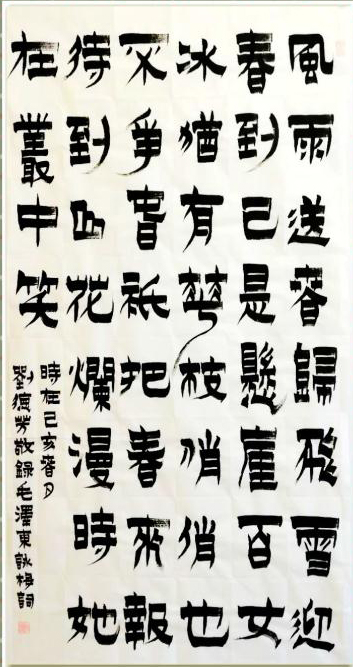 風雨送春歸飛雪迎
春到已是懸崖百丈
冰猶有華枝俏俏也
不爭春祇把春來報
待到山花爛漫時她
在叢中笑
時在己亥春月
劉德芳敬錄毛澤東詠梅詞